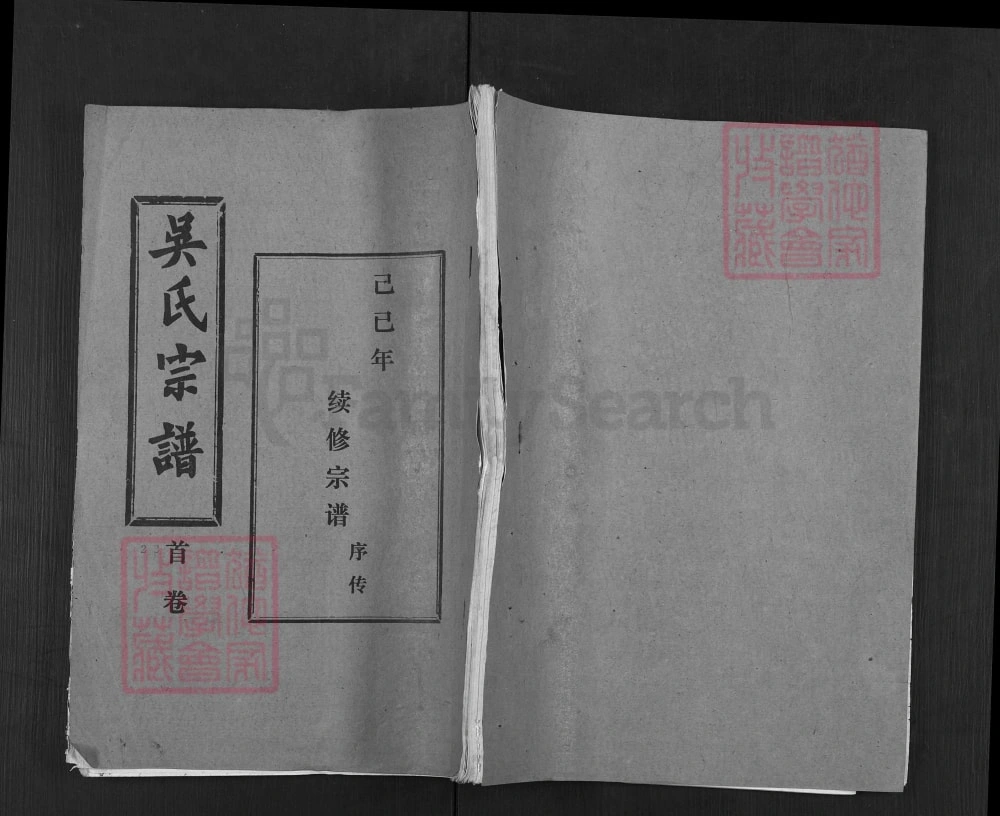 吳氏宗譜
首卷
己巳年
续修宗谱
序传
FamilySearch
猶他家
譜學會
收藏
猶他家
譜學會
收藏